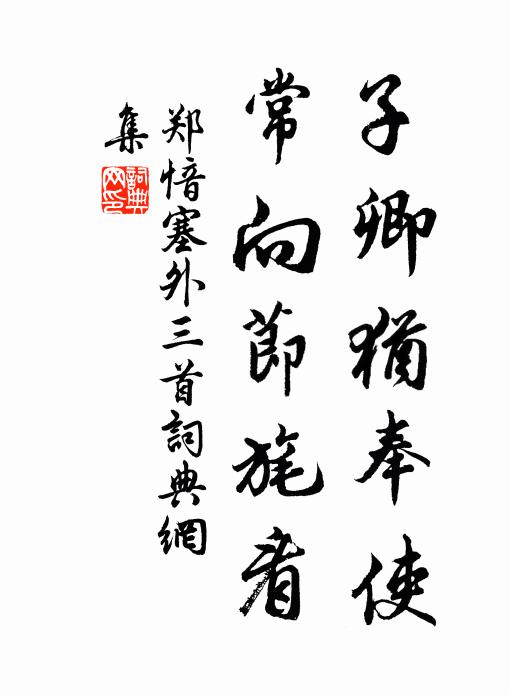 子卿猶奉使
常向節旄看
郑愔塞外三首詞典網
集
詞典网印